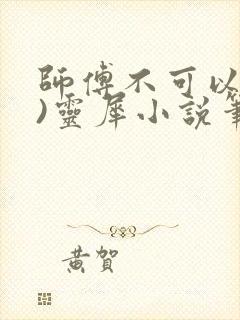 師傅不可以
)靈犀小說筆
黃賀